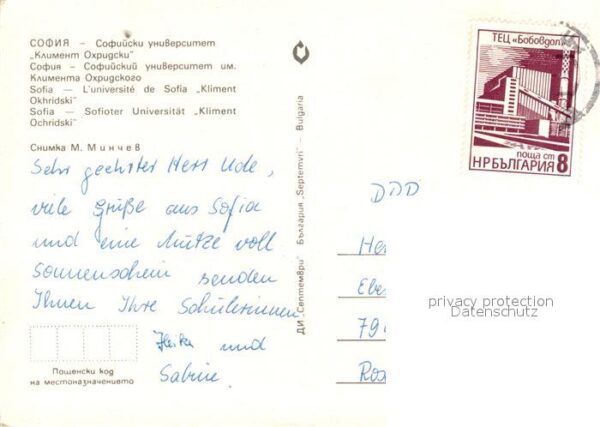 СОФИЯ — Софийски университет
„Климент Охридски"
София — Софийский университет им.
Климента Охридского
Sofia — L'université de Sofia „Kliment
Okhridski"
Sofia — Sofioter Universität „Kliment
Ochridski"
Снимка М. Минчев
Sehr geehrter Herr Ude,
viele Grüße aus Sofia
und eine Mütze voll
Sonnenschein senden
Ihnen Ihre Schülerinnen
Heike und
Sabine
Пощенски код
на местоназначението
ДИ „Септември" България „Septemvri" — Bulgaria
ТЕЦ «Бобовдол»
поща ст
НРБЪЛГАРИЯ 8
DDD
He
Ebe
79
Ro
privacy protection
Datenschutz